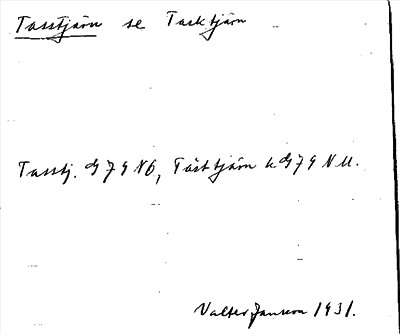 Tasstjärn se Tacktjärn
Tasstj. G 79 NÖ, Tästtjärn k G 79 NU.
Valter Jansson 1931.